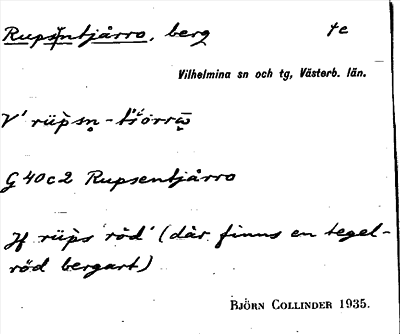 Rupsintjårro, berg 4c
Vilhelmina sn och tg, Västerb. län.
V' rüpsn̥ - tšorrω̄
G 40c2 Rupsentjåro
Jf rüps 'röd' (där finns en tegel-
röd bergart)
BJÖRN COLLINDER 1935.